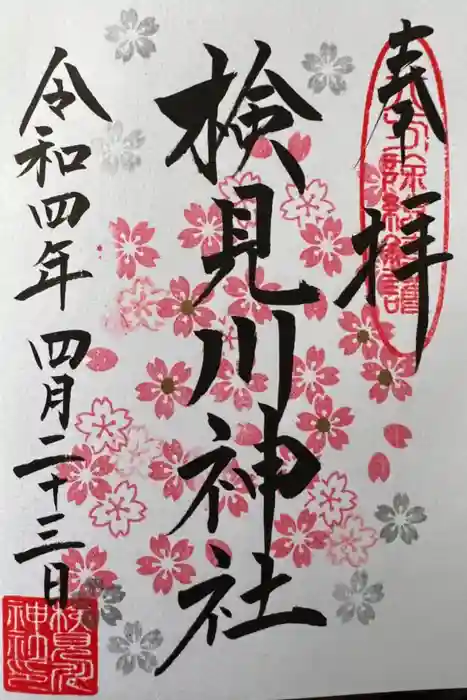 奉拝
検見川神社
令和四年 四月二十三日
検見川神社印